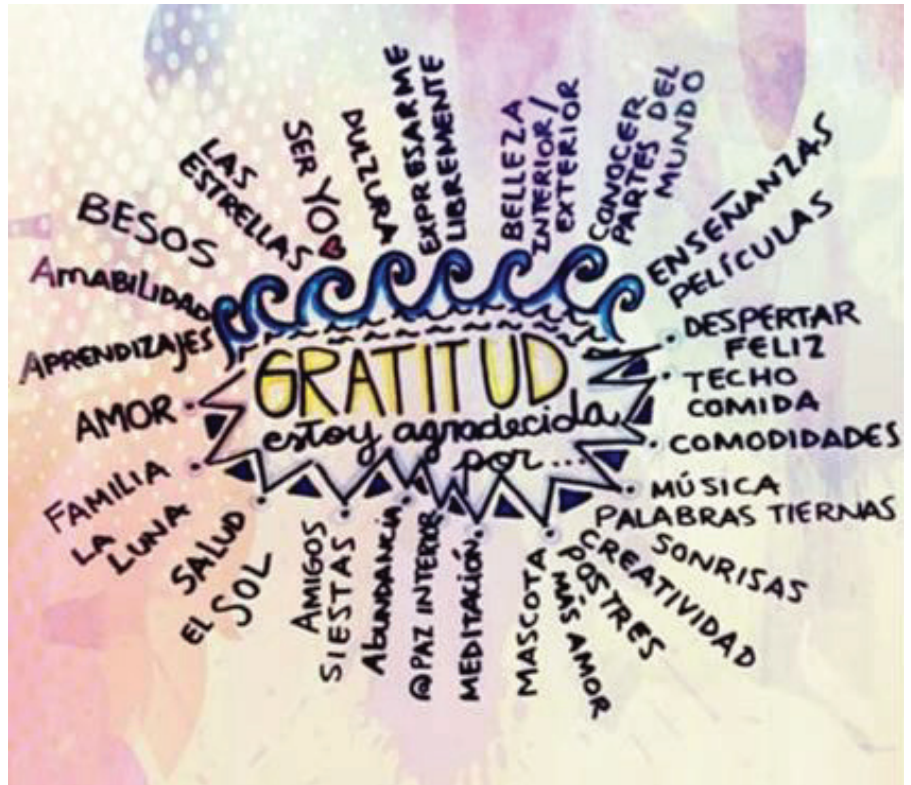 GRATITUD
estoy agradecida
por...
EXPRESARME
LIBREMENTE
BELLEZA
INTERIOR/
EXTERIOR
CONOCER
PARTES DEL
MUNDO
ENSEÑANZAS
PELÍCULAS
DESPERTAR
FELIZ
TECHO
COMIDA
COMODIDADES
MÚSICA
PALABRAS TIERNAS
SONRISAS
CREATIVIDAD
POSTRES
MÁS AMOR
MASCOTA
MEDITACIÓN
@PAZ INTERIOR
AbUNDANCIA
AMIGOS
SIESTAS
EL SOL
SALUD
LA
LUNA
FAMILIA
AMOR
APRENDIZAJES
AmAbILIDAD
BESOS
LAS
ESTRELLAS
SER YO
DULZURA